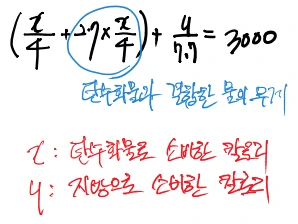 (x/4 + 2.7 × x/4) + y/7.7 = 3000
탄수화물과 결합한 물의 무게
x : 탄수화물로 소비한 칼로리
y : 지방으로 소비한 칼로리